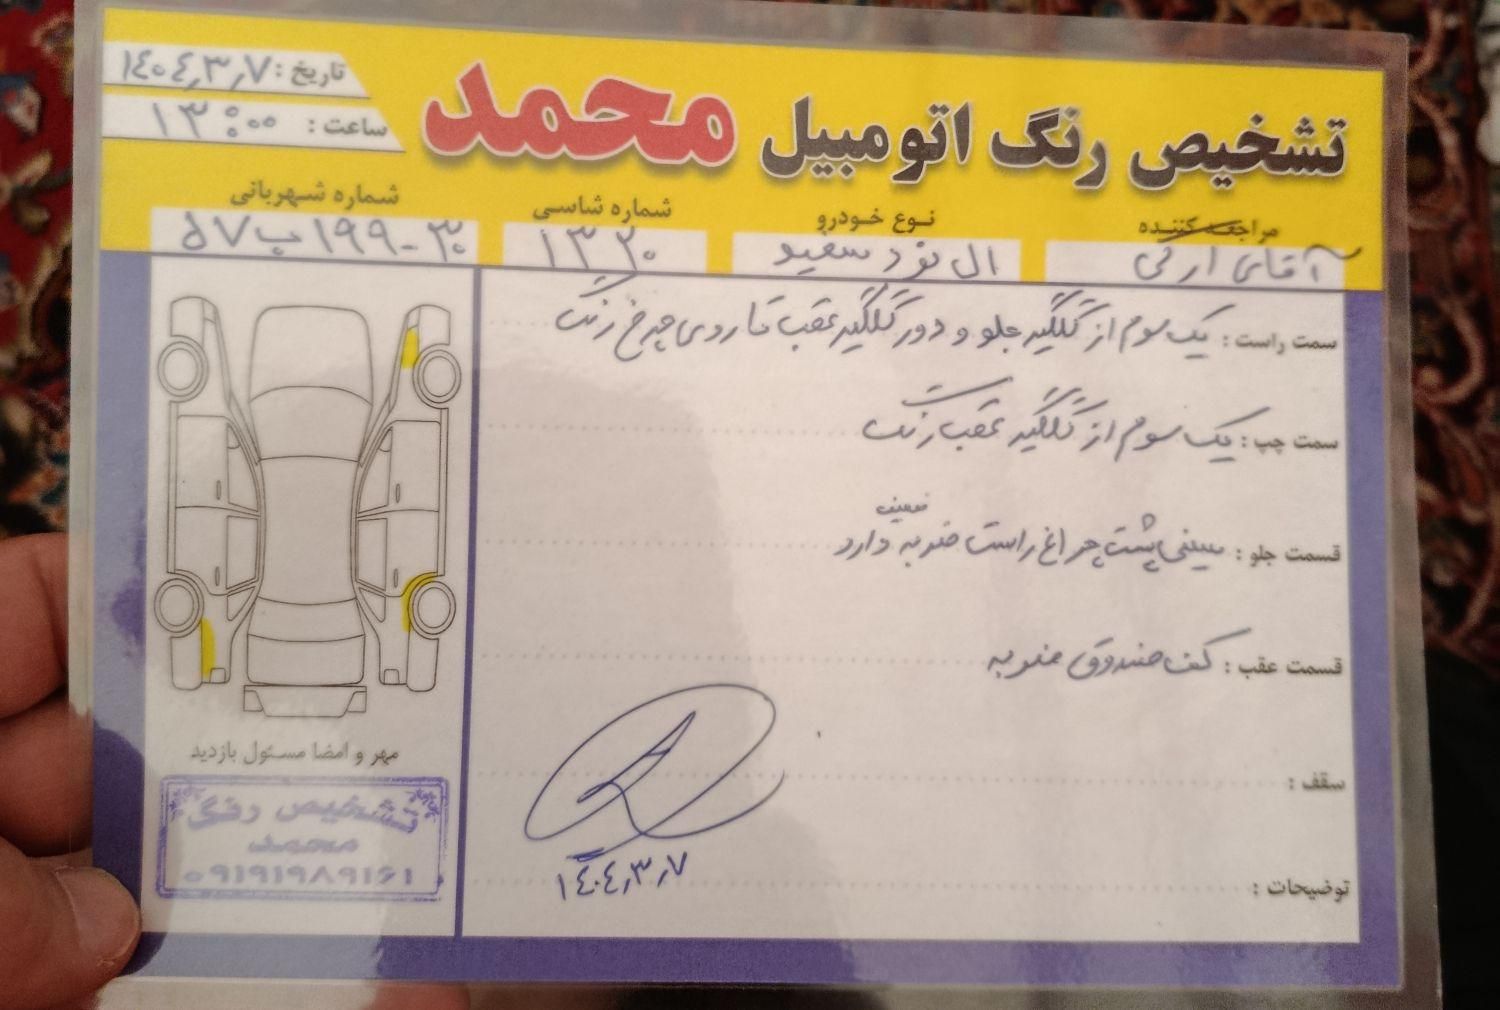 تشخیص رنگ اتومبیل محمد
تاریخ : ۱۴۰۴٫۳٫۷
ساعت : ۱۳:۰۰
مراجعه کننده
آقای
نوع خودرو
ال نود سفید
شماره شاسی
۱۳۲۰
شماره شهربانی
۵۷ب۱۹۹-۳۰
سمت راست : یک سوم از گلگیر جلو و دور گلگیر عقب تا روی چرخ رنگ
سمت چپ : یک سوم از گلگیر عقب رنگ
قسمت جلو : سینی پشت چراغ راست ضربه ضعیف دارد
قسمت عقب : کف صندوق ضربه
سقف :
توضیحات :
۱۴۰۴٫۳٫۷
مهر و امضا مسئول بازدید
تشخیص رنگ
محمد
۰۹۱۹۱۹۸۹۱۶۱